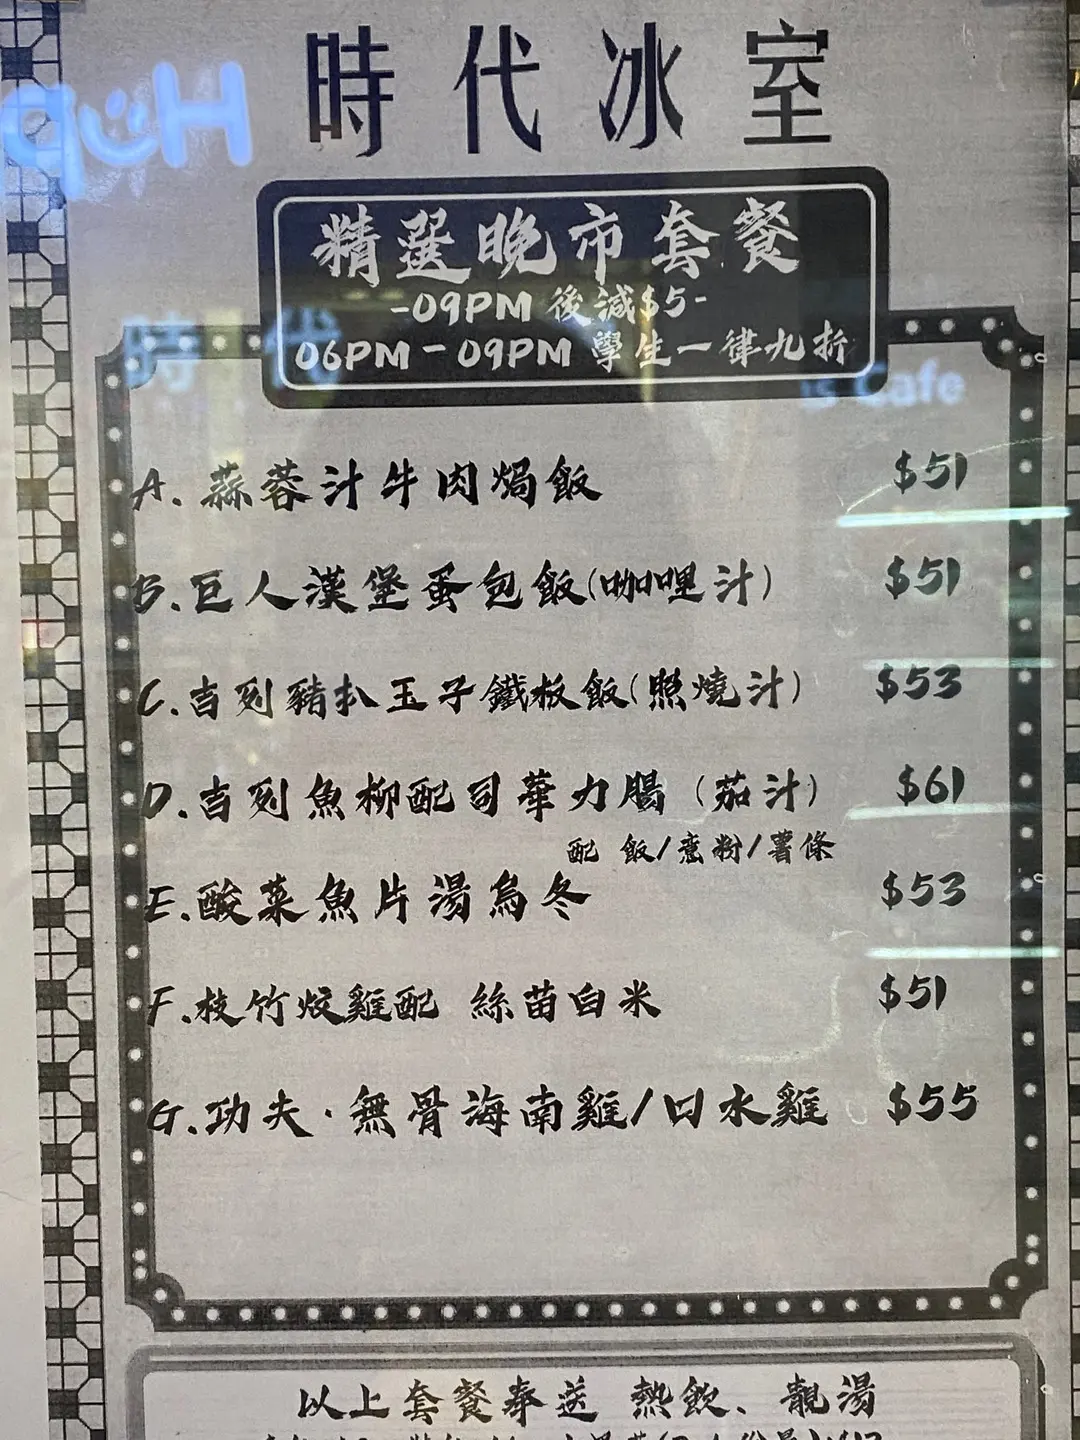 時代冰室
精選晚市套餐
-09PM 後減$5-
06PM-09PM 學生一律九折
時代
is Cafe
A. 蒜蓉汁牛肉焗飯 $51
B. 巨人漢堡蛋包飯(咖哩汁) $51
C. 吉列豬扒玉子鐵板飯(照燒汁) $53
D. 吉列魚柳配司華力腸 (茄汁) $61
配 飯/意粉/薯條
E. 酸菜魚片湯烏冬 $53
F. 枝竹炆雞配 絲苗白米 $51
G. 功夫·無骨海南雞/口水雞 $55
以上套餐奉送 熱飲、靚湯